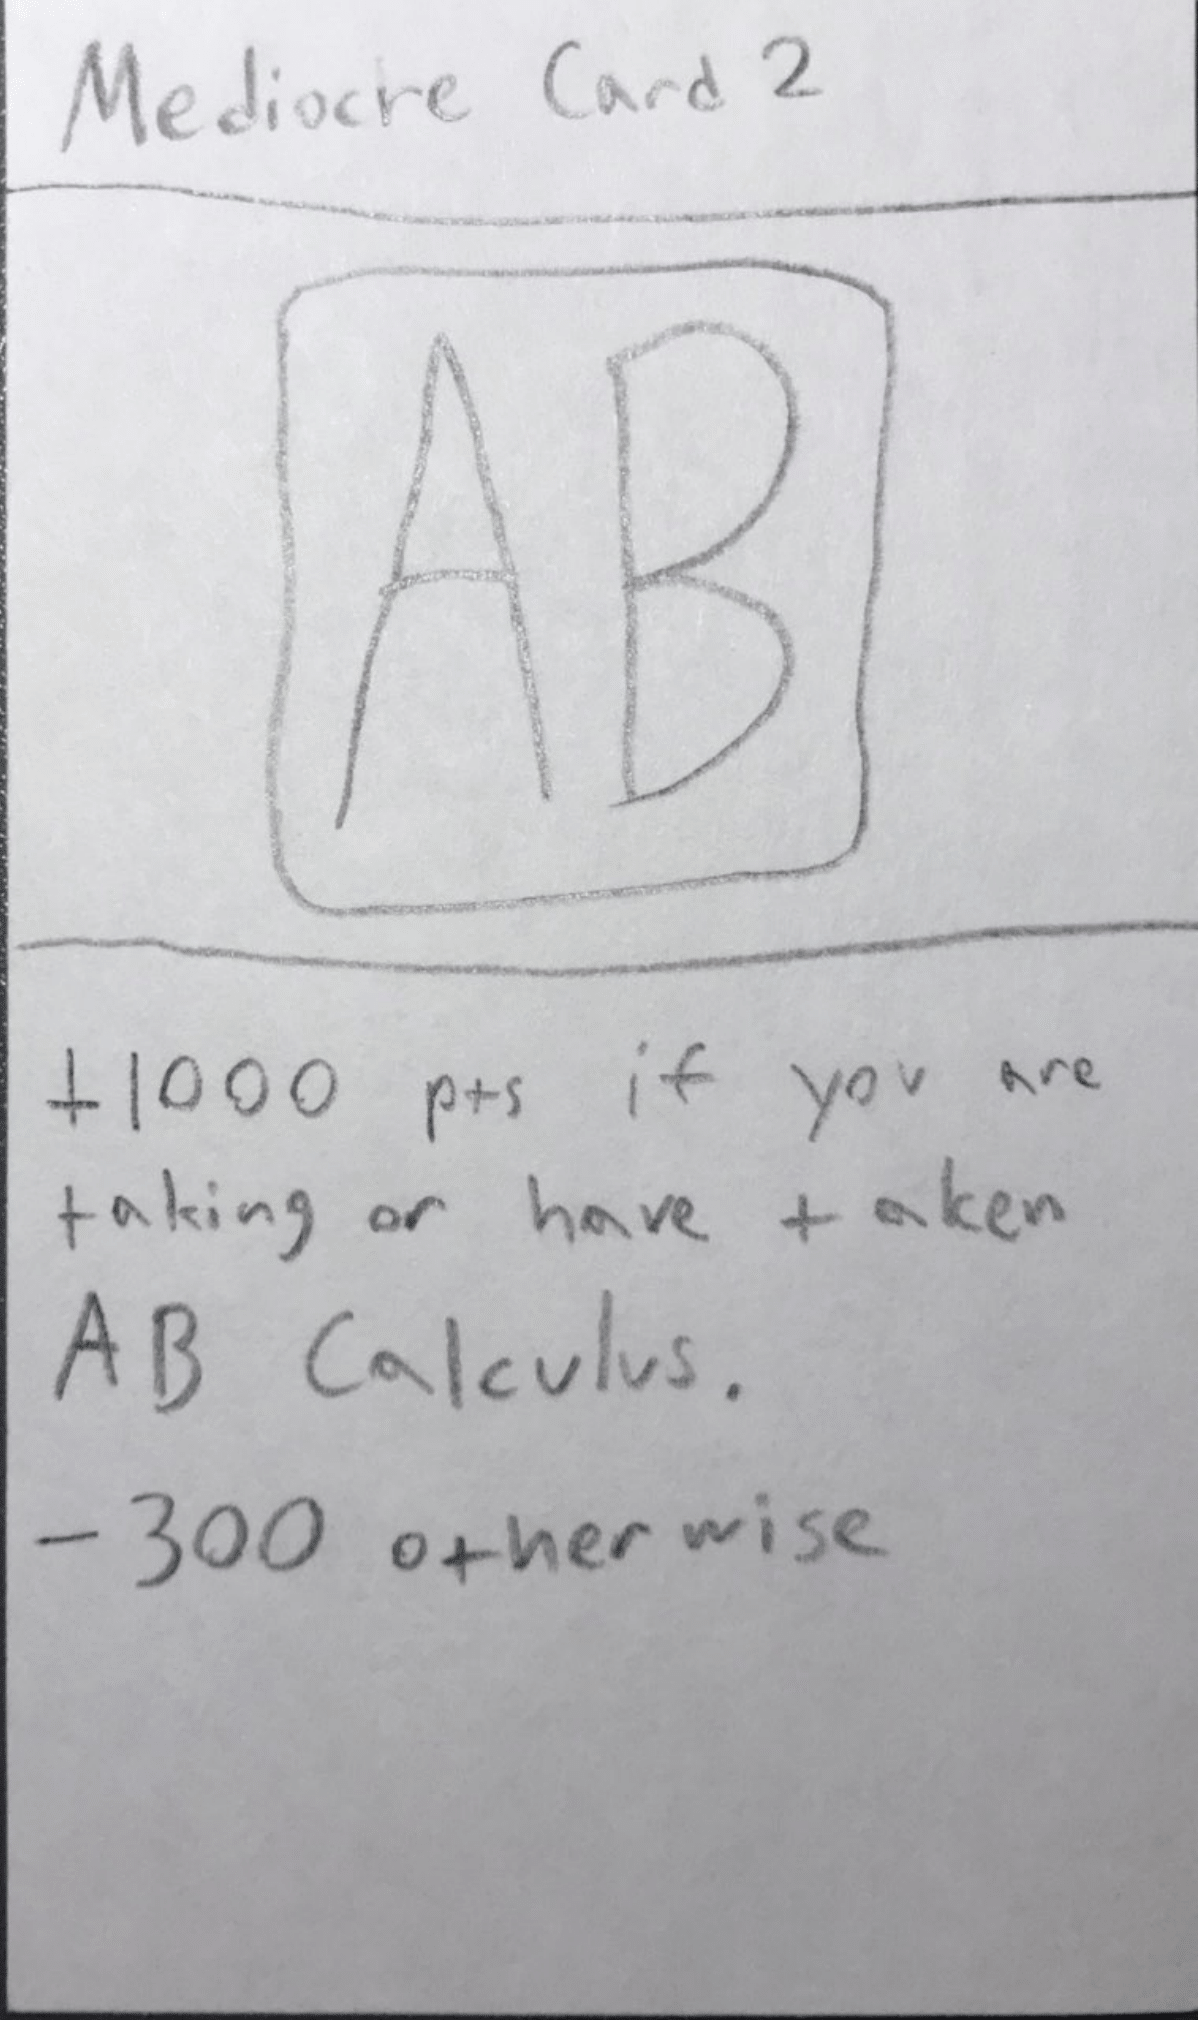 Mediocre Card 2
AB
+1000 pts if you are
taking or have taken
AB Calculus.
-300 otherwise